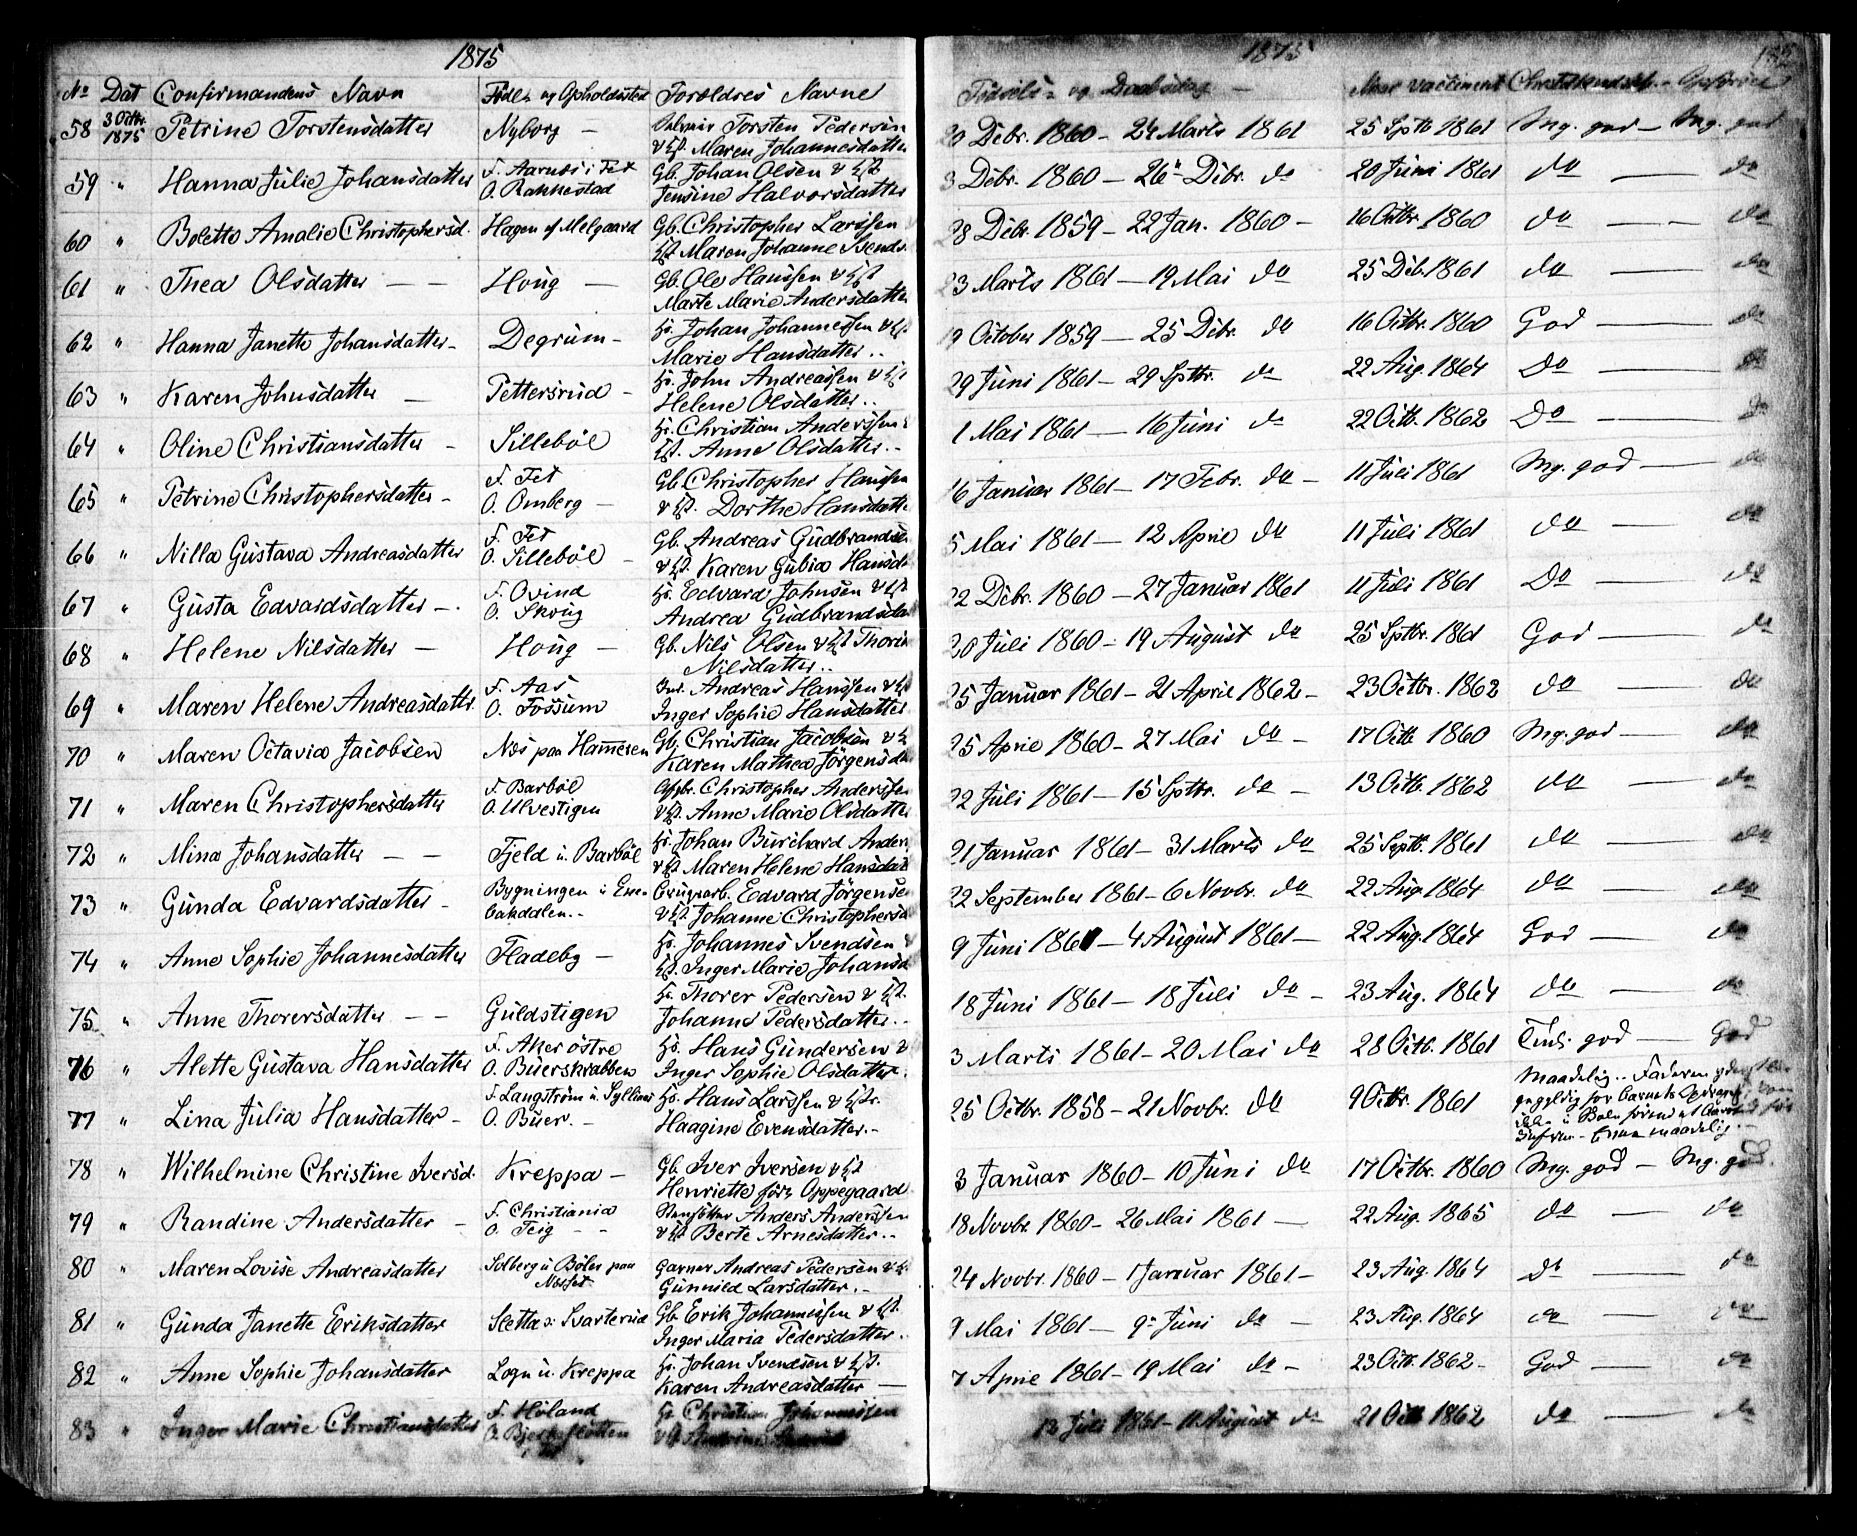 1875
No Dat Confirmandens Navn Føde- og Opholdssted Forældres Navne
58 3 Octbr. 1875 Petrine Torstensdatter Nyborg – Torsten Pedersen
& Hst. Maren Johannesdatter
59 " Hanna Julie Johansdatter F. Aarnæs i Fet Gb. Johan Olsen & Hst
O. Rakkestad Jensine Halvorsdatter
60 " Bolette Amalie Christophersd. Hagen u/ Melgaard Gb. Christopher Larssen
Hst Maren Johanne Svends.
61 " Thea Olsdatter – – Houg – Gb. Ole Hanssen & Hst
Marte Marie Andersdatter
62 " Hanna Janette Johansdatter – Degrum – Hs. Johan Johannessen & Hst
Marie Hansdatter..
63 " Karen Johnsdatter – Pettersrud – Hs. John Andreassen & Hst
Helene Olsdatter..
64 " Oline Christiansdatter – Sillebøl Hs. Christian Anderssen &
Hst. Anne Olsdatter.–
65 " Petrine Christophersdatter – F. Fet Gb. Christopher Hanssen
O. Omberg – & Hst. Dorthe Hansdatte
66 " Nilla Gustava Andreasdatter F. Fet Gb. Andreas Gudbrandse
O. Sillebøl – & Hst. Karen Gubia Hansd
67 " Gusta Edvardsdatter –. F. Ovind Hs. Edvard Johnsen & Hst
O. Skoug Andrea Gudbrandsda
68 " Helene Nilsdatter – Houg – Gb. Nils Olsen & Hst Thorin
Nilsdatter..
69 " Maren Helene Andreasdattr. F. Aas Andreas Hanssen & Hst
O. Fossum Inger Sophie Hansdatter
70 " Maren Octavia Jacobsen Næs paa Hammeren Gb. Christian Jacobsen & H
Karen Mathea Jørgensda
71 " Maren Christophersdatter F. Barbøl Christopher Anderssen
O. Ulvestigen & Hst. Anne Marie Olsdatter
72 " Mina Johansdatter – – Fjeld u. Barbøl Hs. Johan Burchard Anders
& Hst Maren Helene Hansdat
73 " Gunda Edvardsdatter – Bygningen i Ene- Brugsarb. Edvard Jørgense
bakdalen.. & Hst Johanne Christophersd
74 " Anne Sophie Johannesdatter Fladeby – Hs. Johannes Svendsen &
Hst. Inger Marie Johansd
75. " Anne Thorersdatter – – Guldstigen Hs. Thorer Pedersen & Hst.
Johanne Pedersdatter..
76 " Alette Gustava Hansdatter F. Aker østre Hs. Hans Gundersen &
O. Buerskrabben Inger Sophie Olsdatter.
77 " Lina Julia Hansdatter – F. Langstrøm u. Hs. Hans Larssen & Hstr.
O. Buer.– Haagine Evensdatter.–
78 " Wilhelmine Christine Iversd. Kreppa – Gb. Iver Iversen & Hst
Henriette Oppegaard
79 " Randine Andersdatter – F. Christiania Anders Anderssen
O. Teig – – & Hst Berte Arnesdatter..
80 " Maren Lovise Andreasdatter Solberg u Bøler paa Garver Andreas Pedersen & H.
Næsset Gunnild Larsdatter.–
81 " Gunda Janette Eriksdatter Sletta u. Svarterud Gb. Erik Johannessen & Hst.
Inger Maria Pedersdatter..
82 " Anne Sophie Johansdatter u. Kreppa Hs. Johan Svendsen & Hst.
Karen Andreasdatter –
83 " Inger Marie Christiansdatter F. Høland Hs Christian Johannessen
O. & Hst
1875
Fødsels- og Daabsdag – Naar vaccineret Christendomsk. – Opførsel
20 Debr. 1860 – 24 Marts 1861 25 Sptb 1861 Mg. god – Mg. god
3 Debr. 1860 – 26 Debr. do 20 Juni 1861 do – do
28 Debr. 1859 – 22 Jan. 1860 – 16 Octbr. 1860 do – do
23 Marts 1861 – 19 Mai do 25 Deb. 1861 do – do
19 October 1859 – 25 Debr. do 16 Octbr. 1860 God – do
29 Juni 1861 – 29 Sptbr. do 22 Aug. 1864 Do – do
1 Mai 1861 – 16 Juni do 22 Octb. 1862 Do – do
16 Januar 1861 – 17 Febr. do – 11 Juli 1861 Mg. god – do
5 Mai 1861 – 12 April do 11 Juli 1861 do – do
22 Debr. 1860 – 27 Januar 1861 11 Juli 1861 Do – do
20 Juli 1860 – 19 August do 25 Sptbr. 1861 God – do
25 Januar 1861 – 21 April 1862 – 23 Octbr. 1862 do – do
25 April 1860 – 27 Mai do – 17 Octb 1860 Mg. god – do
22 Juli 1861 – 15 Sptbr. do – 13 Octb. 1862 do – do
21 Januar 1861 – 31 Marts do 25 Septb. 1861 do – do
22 September 1861 – 6 Novbr. do 22 Aug 1864 do – do
9 Juni 1861 – 4 August 1861 – 22 Aug. 1864 God – do
18 Juni 1861 – 18 Juli do – 23 Aug. 1864 do – do
3 Marts 1861 – 20 Mai do 28 Octb. 1861 god – God
25 Octbr. 1858 – 21 Novbr. do 9 Octbr. 1861 Maadelig.. Faderen
for Barnets
maadelig.
3 Januar 1860 – 10 Juni do 17 Octbr. 1860 Mg. god – Mg. god.
18 Novbr 1860 – 26 Mai 1861 – 22 Aug. 1865 do – do
24 Novbr. 1860 – 1 Januar 1861 – 23 Aug. 1864 do – do
9 Mai 1861 – 9 Juni do – 23 Aug. 1864 do – do
7 April 1861 – 19 Mai do – 23 Octb. 1862 – God – do
13 Juli 1861 – 11 August do 21 Oct 1862 do – do